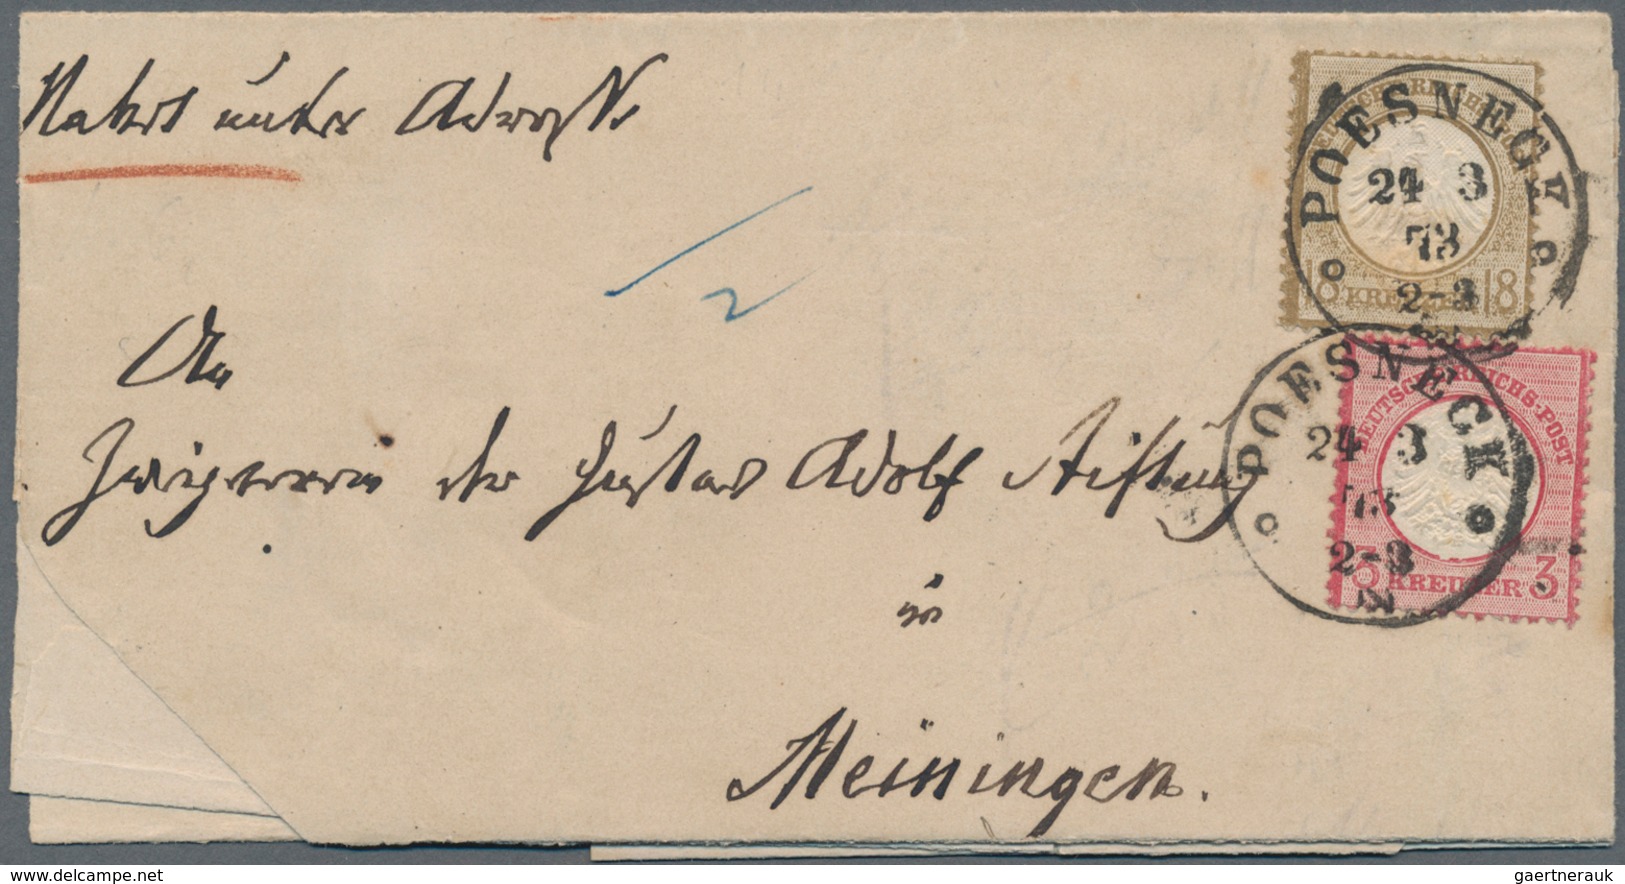 unter Adresse
POESNECK
24 3
73
2-3
18 KREUZER 18
POESNECK
24 3
73
2-3
DEUTSCHE REICHS-POST
3 KREUZER 3
An
Zweigverein der Gustav Adolf Stiftung
in
Meiningen.
www.delcampe.net
gaertnerauk